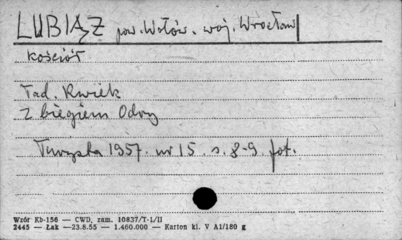 LUBIĄŻ pow. Wołów. woj. Wrocław
kościół
Tad. Kwiek
Z biegiem Odry
Turysta 1957. nr 15. s. 8-9. fot.
Wzór Kb-156 — CWD, zam. 10837/T-1/II
2445 — Łak —23.8.55 — 1.460.000 — Karton kl. V A1/180 g